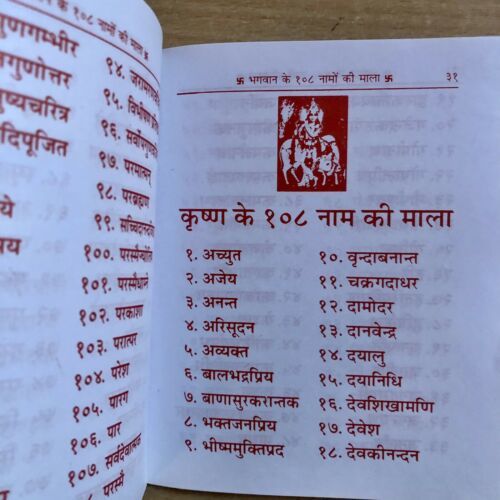 के १०८ नामों की माला 卐
गुणगम्भीर
गुणोत्तर
चरित्र
पूजित
९४.
९५.
९६.
९७. परमात्मन्
९८. परब्रह्मण
९९.
१००.
१०१.
१०२. परकाशा
१०३. परात्पर
१०४. परेश
१०५. पारग
१०६. पार
१०७.
卐 भगवान के १०८ नामों की माला 卐 ३१
कृष्ण के १०८ नाम की माला
१. अच्युत
२. अजेय
३. अनन्त
४. अरिसूदन
५. अव्यक्त
६. बालभद्रप्रिय
७. बाणासुरकरान्तक
८. भक्तजनप्रिय
९. भीष्ममुक्तिप्रद
१०. वृन्दाबनान्त
११. चक्रगदाधर
१२. दामोदर
१३. दानवेन्द्र
१४. दयालु
१५. दयानिधि
१६. देवशिखामणि
१७. देवेश
१८. देवकीनन्दन